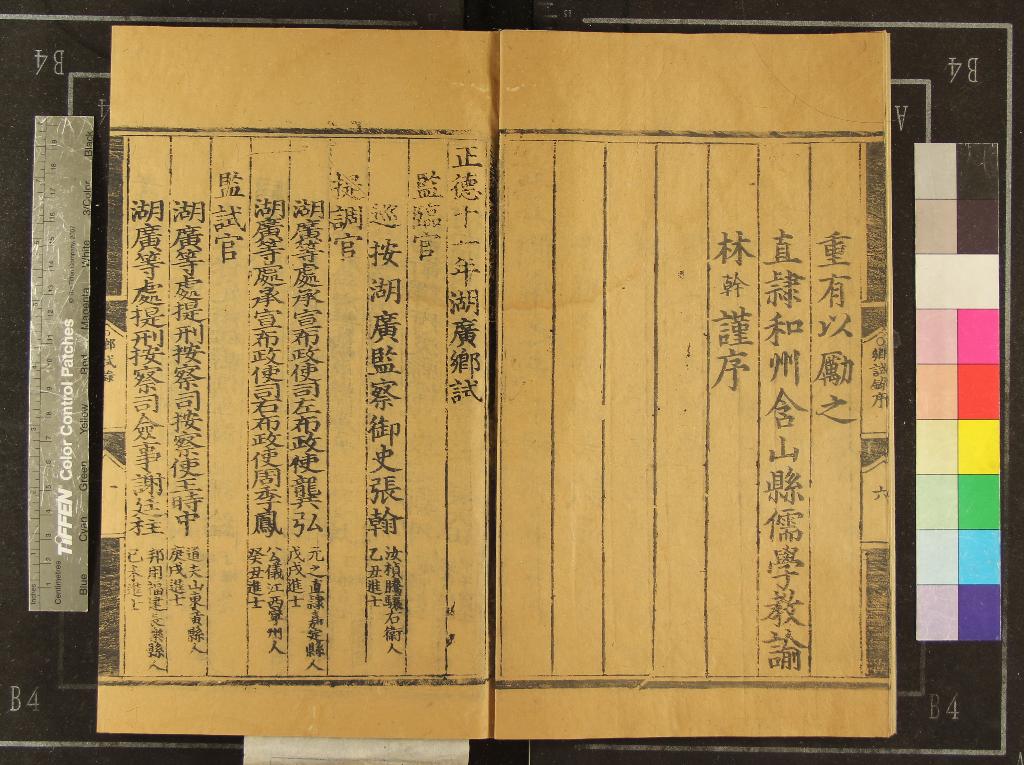 重有以勵之
直隷和州含山縣儒學教諭
林幹謹序
鄉試錄序
六
正德十一年湖廣鄉試
監臨官
巡按湖廣監察御史張翰 汝楨騰驤右衛人 乙丑進士
提調官
湖廣等處承宣布政使司左布政使龔弘 元之直隷嘉定縣人 戊戌進士
湖廣等處承宣布政使司右布政使周季鳳 公儀江西寧州人 癸丑進士
監試官
湖廣等處提刑按察司按察使王時中 道夫山東黃縣人 庚戌進士
湖廣等處提刑按察司僉事謝廷柱 邦用福建長樂縣人 己未進士
鄉試錄
TIFFEN Color Control Patches
Blue Cyan Green Yellow Red Magenta White 3/Color Black
Inches
Centimetres
B4
B4
B4
B4
A